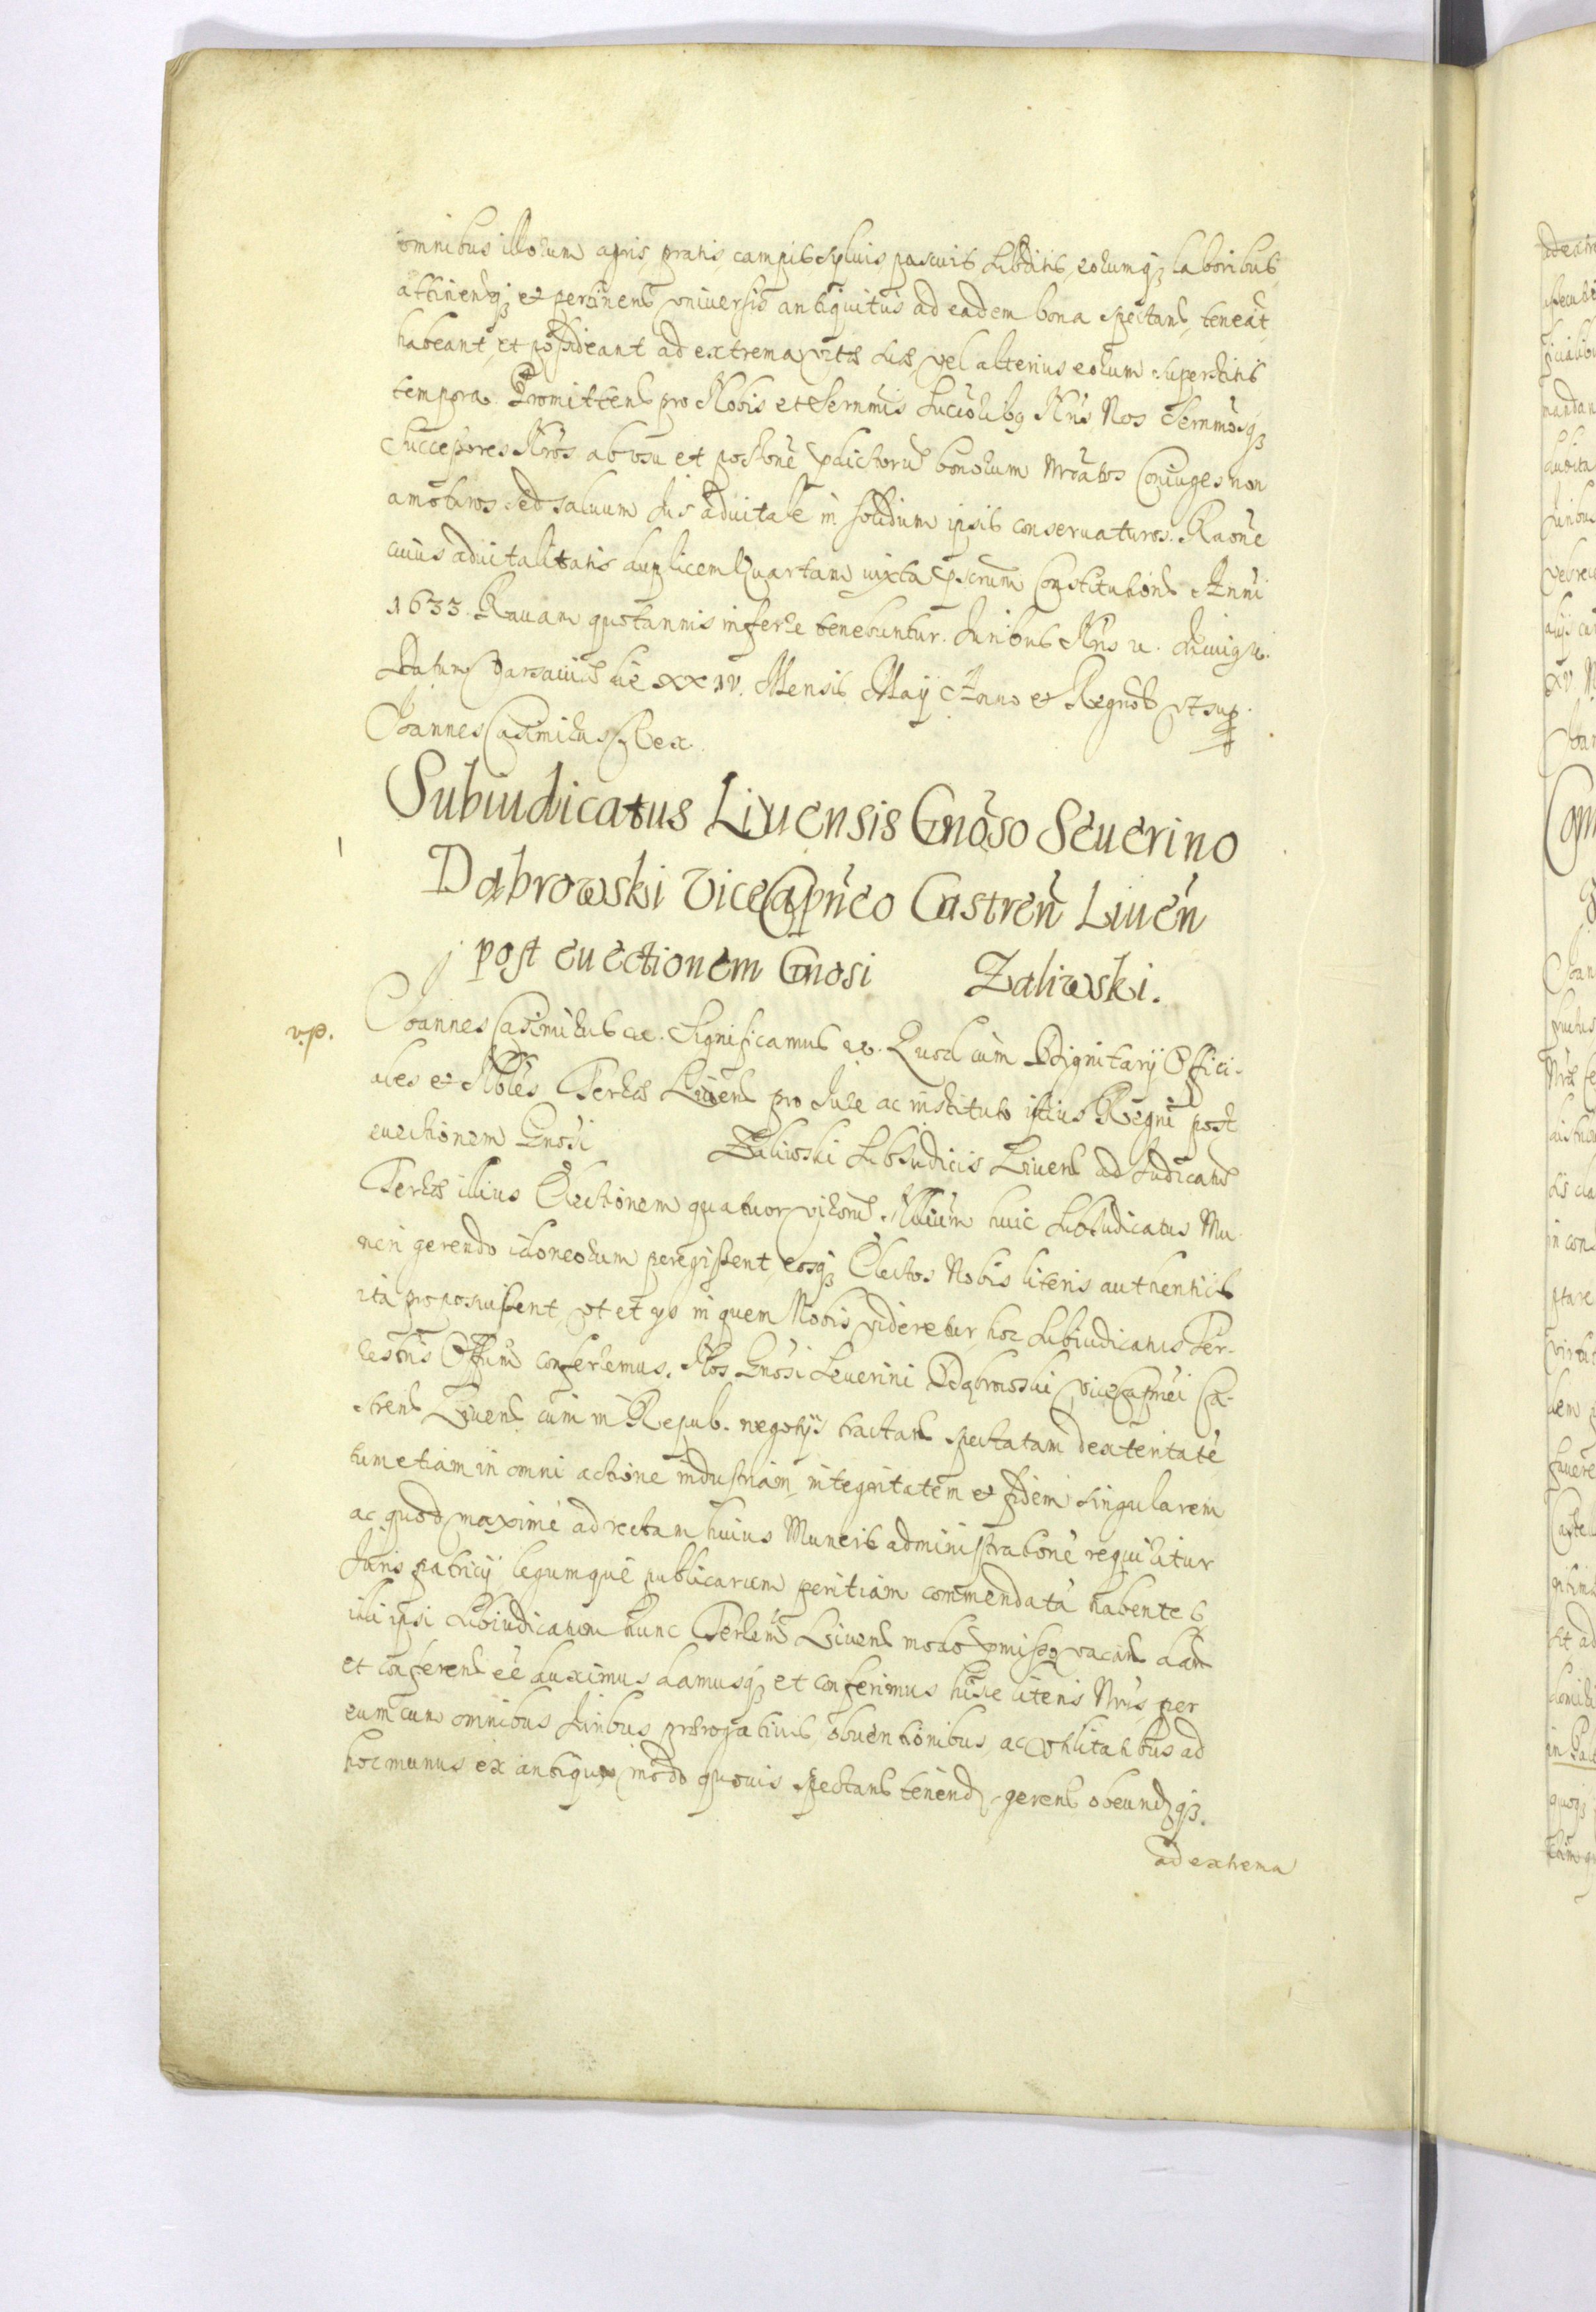 omnibus illorum agris, pratis campis sylvis pascuis subditis, eorumq; laboribus,
attinen̄q; et pertinen̄ universis antiquitus ad eadem bona spectan̄, teneāt
habeant, et possideant ad extrema vitæ suæ, vel alterius eorum superstitis
tempora. Promitten̄ pro Nobis et Sernmis Succōribq Nrīs Nos Sernmosq;
Successores Nrōs ab usu et possōne pdictorū bonorum mrātos Coniuges non
amoturos, sed salvum Jus advitale in solidum ipsis conservaturos. Raōne
cuius advitalitatis duplicem Quartam iuxta pscrūm Constitutiōnē Anni
1633. Ravam quotannis inferre tenebuntur. Juribus Nrīs
Datum Varsaviæ die XXIV. Mensis Maij Anno et Regnōr ut sup.
Joannes Casimirus Rex.
Subiudicatus Livensis Gnōso Severino
Dąbrowski ViceCapnēo Castren̄ Liven̄
post evectionem Gnosi Zaliwski.
v.p. Joannes Casimirus etc. Significamus etc. Quod cum Dignitarij Offici-
ales et Nobles Terræ Liven̄ pro Jure ac instituto illius Regni post
evectionem Gnosi Zaliwski SubJudicis Liven̄ ad Judicand
Terræ illius Electionem quatuor virorū Nbilium huic SubJudicatus Mu
neri gerendo idoneorum peregissent, eosq; Electos Nobis literis authenticis
ita proposuissent, ut ex ys in quem Nobis videretur, hoc Subiudicatus Ter-
restris Offium conferremus. Nos Gnosi Severini Dąbrowski ViceCapnei Ca-
stren̄ Liven̄ cum in Repub. negotijs tractan̄ spectatam dexteritatē
tum etiam in omni actione industriam, integritatem et fidem singularem
ac quod maxime ad rectam huius Muneris administrationē requiritur
Juris patrij legumque publicarum peritiam commendatā habentes,
illi ipsi Subiudicatum hunc Terrem Liven̄ modo pmisso vacan̄ dan̄
et conferen̄ eē duximus damusq; et conferimus hisce literis Nris, per
eum cum omnibus Juribus prærogativis, obventionibus, ac utilitatibus ad
hoc munus ex antiquo modo quovis spectan̄ tenend, geren̄ obeundq;.
ad extrema